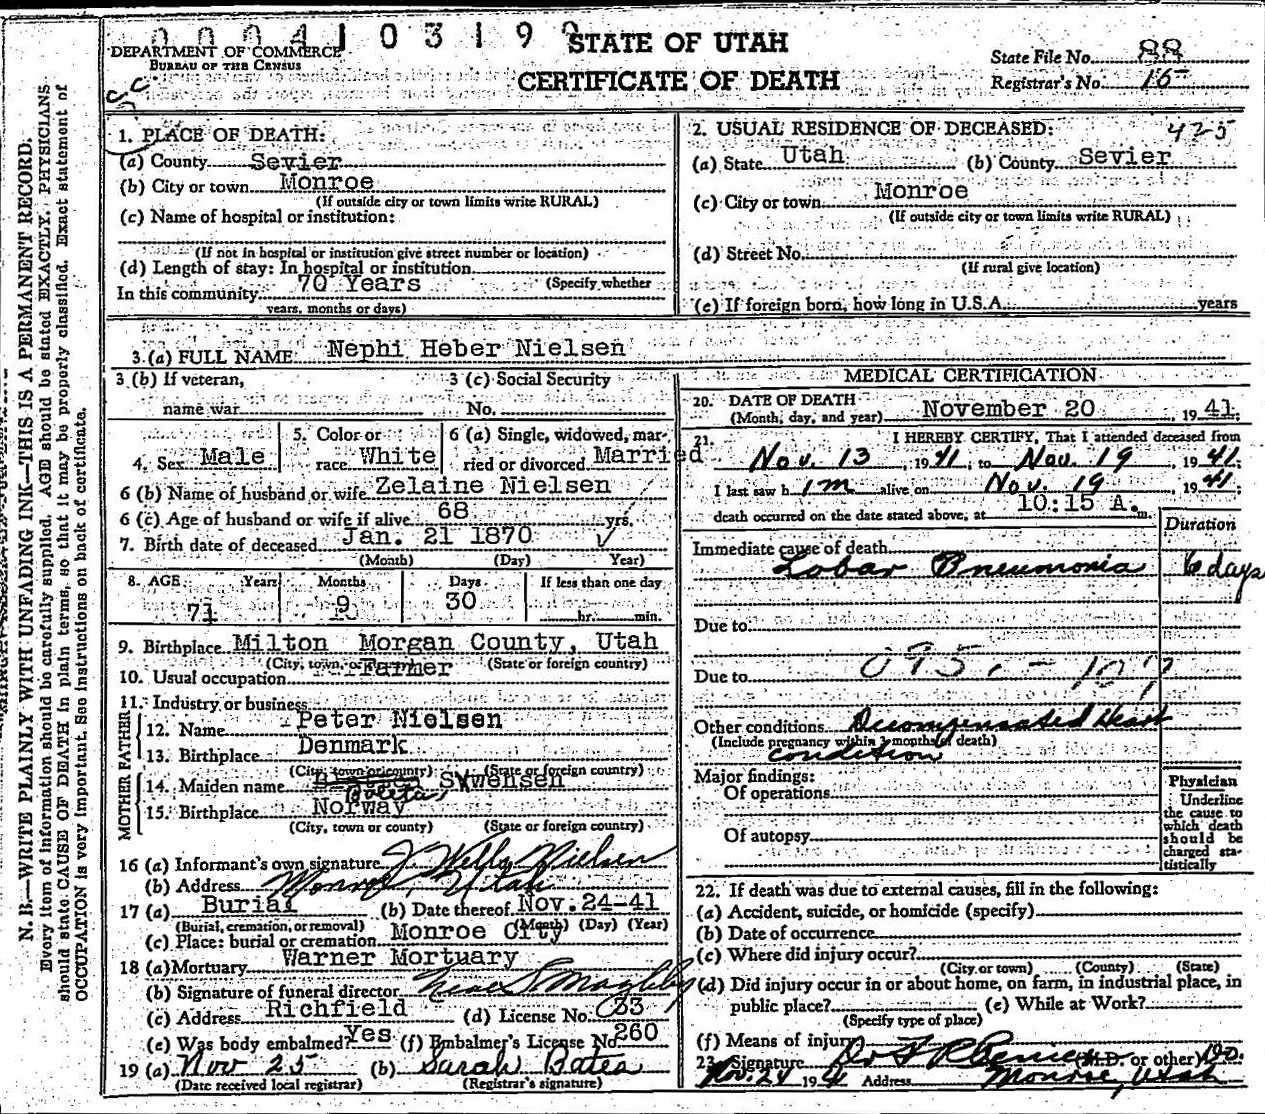 STATE OF UTAH
CERTIFICATE OF DEATH
DEPARTMENT OF COMMERCE
BUREAU OF THE CENSUS
State File No. 88
Registrar's No. 16
N. B.—WRITE PLAINLY WITH UNFADING INK—THIS IS A PERMANENT RECORD.
Every item of information should be carefully supplied. AGE should be stated EXACTLY. PHYSICIANS
should state CAUSE OF DEATH in plain terms, so that it may be properly classified. Exact statement of
OCCUPATION is very important. See instructions on back of certificate.
1. PLACE OF DEATH:
(a) County Sevier
(b) City or town Monroe
(If outside city or town limits write RURAL)
(c) Name of hospital or institution:
(If not in hospital or institution give street number or location)
(d) Length of stay: In hospital or institution
In this community 70 Years (Specify whether
years, months or days)
2. USUAL RESIDENCE OF DECEASED: 425
(a) State Utah (b) County Sevier
(c) City or town Monroe
(If outside city or town limits write RURAL)
(d) Street No.
(If rural give location)
(e) If foreign born, how long in U.S.A. years
3. (a) FULL NAME Nephi Heber Nielsen
3 (b) If veteran, 3 (c) Social Security
name war No.
4. Sex Male 5. Color or race White 6 (a) Single, widowed, married or divorced Married
6 (b) Name of husband or wife Zelaine Nielsen
6 (c) Age of husband or wife if alive 68 yrs.
7. Birth date of deceased Jan. 21 1870
(Month) (Day) Year)
8. AGE Years Months Days If less than one day
71 9 30 hr. min.
9. Birthplace Milton Morgan County, Utah
(City, town, or (State or foreign country)
10. Usual occupation Farmer
11. Industry or business
FATHER
12. Name Peter Nielsen
13. Birthplace Denmark
(City, town or county) (State or foreign country)
MOTHER
14. Maiden name Swensen
15. Birthplace Norway
(City, town or county) (State or foreign country)
16 (a) Informant's own signature J. Wells Nielsen
(b) Address Monroe, Utah
17 (a) Burial (b) Date thereof Nov. 24-41
(Burial, cremation, or removal) (Month) (Day) (Year)
(c) Place: burial or cremation Monroe City
18 (a) Mortuary Warner Mortuary
(b) Signature of funeral director
(c) Address Richfield (d) License No. 33
(e) Was body embalmed? Yes (f) Embalmer's License No. 260
19 (a) Nov 25 (b) Sarah Bates
(Date received local registrar) (Registrar's signature)
MEDICAL CERTIFICATION
20. DATE OF DEATH
(Month, day, and year) November 20, 1941;
21. I HEREBY CERTIFY, That I attended deceased from
Nov. 13, 1941, to Nov. 19, 1941;
I last saw him alive on Nov. 19, 1941;
death occurred on the date stated above, at 10:15 A. m.
Duration
Immediate cause of death
Lobar Pneumonia 6 days
Due to
Due to
Other conditions Decompensated Heart
(Include pregnancy within 3 months of death)
condition
Major findings:
Of operations
Of autopsy
Physician
Underline
the cause to
which death
should be
charged sta-
tistically
22. If death was due to external causes, fill in the following:
(a) Accident, suicide, or homicide (specify)
(b) Date of occurrence
(c) Where did injury occur?
(City or town) (County) (State)
(d) Did injury occur in or about home, on farm, in industrial place, in
public place? (e) While at Work?
(Specify type of place)
(f) Means of injury
23. Signature (M.D. or other) Do.
Nov. 24 1941 Address Monroe, Utah